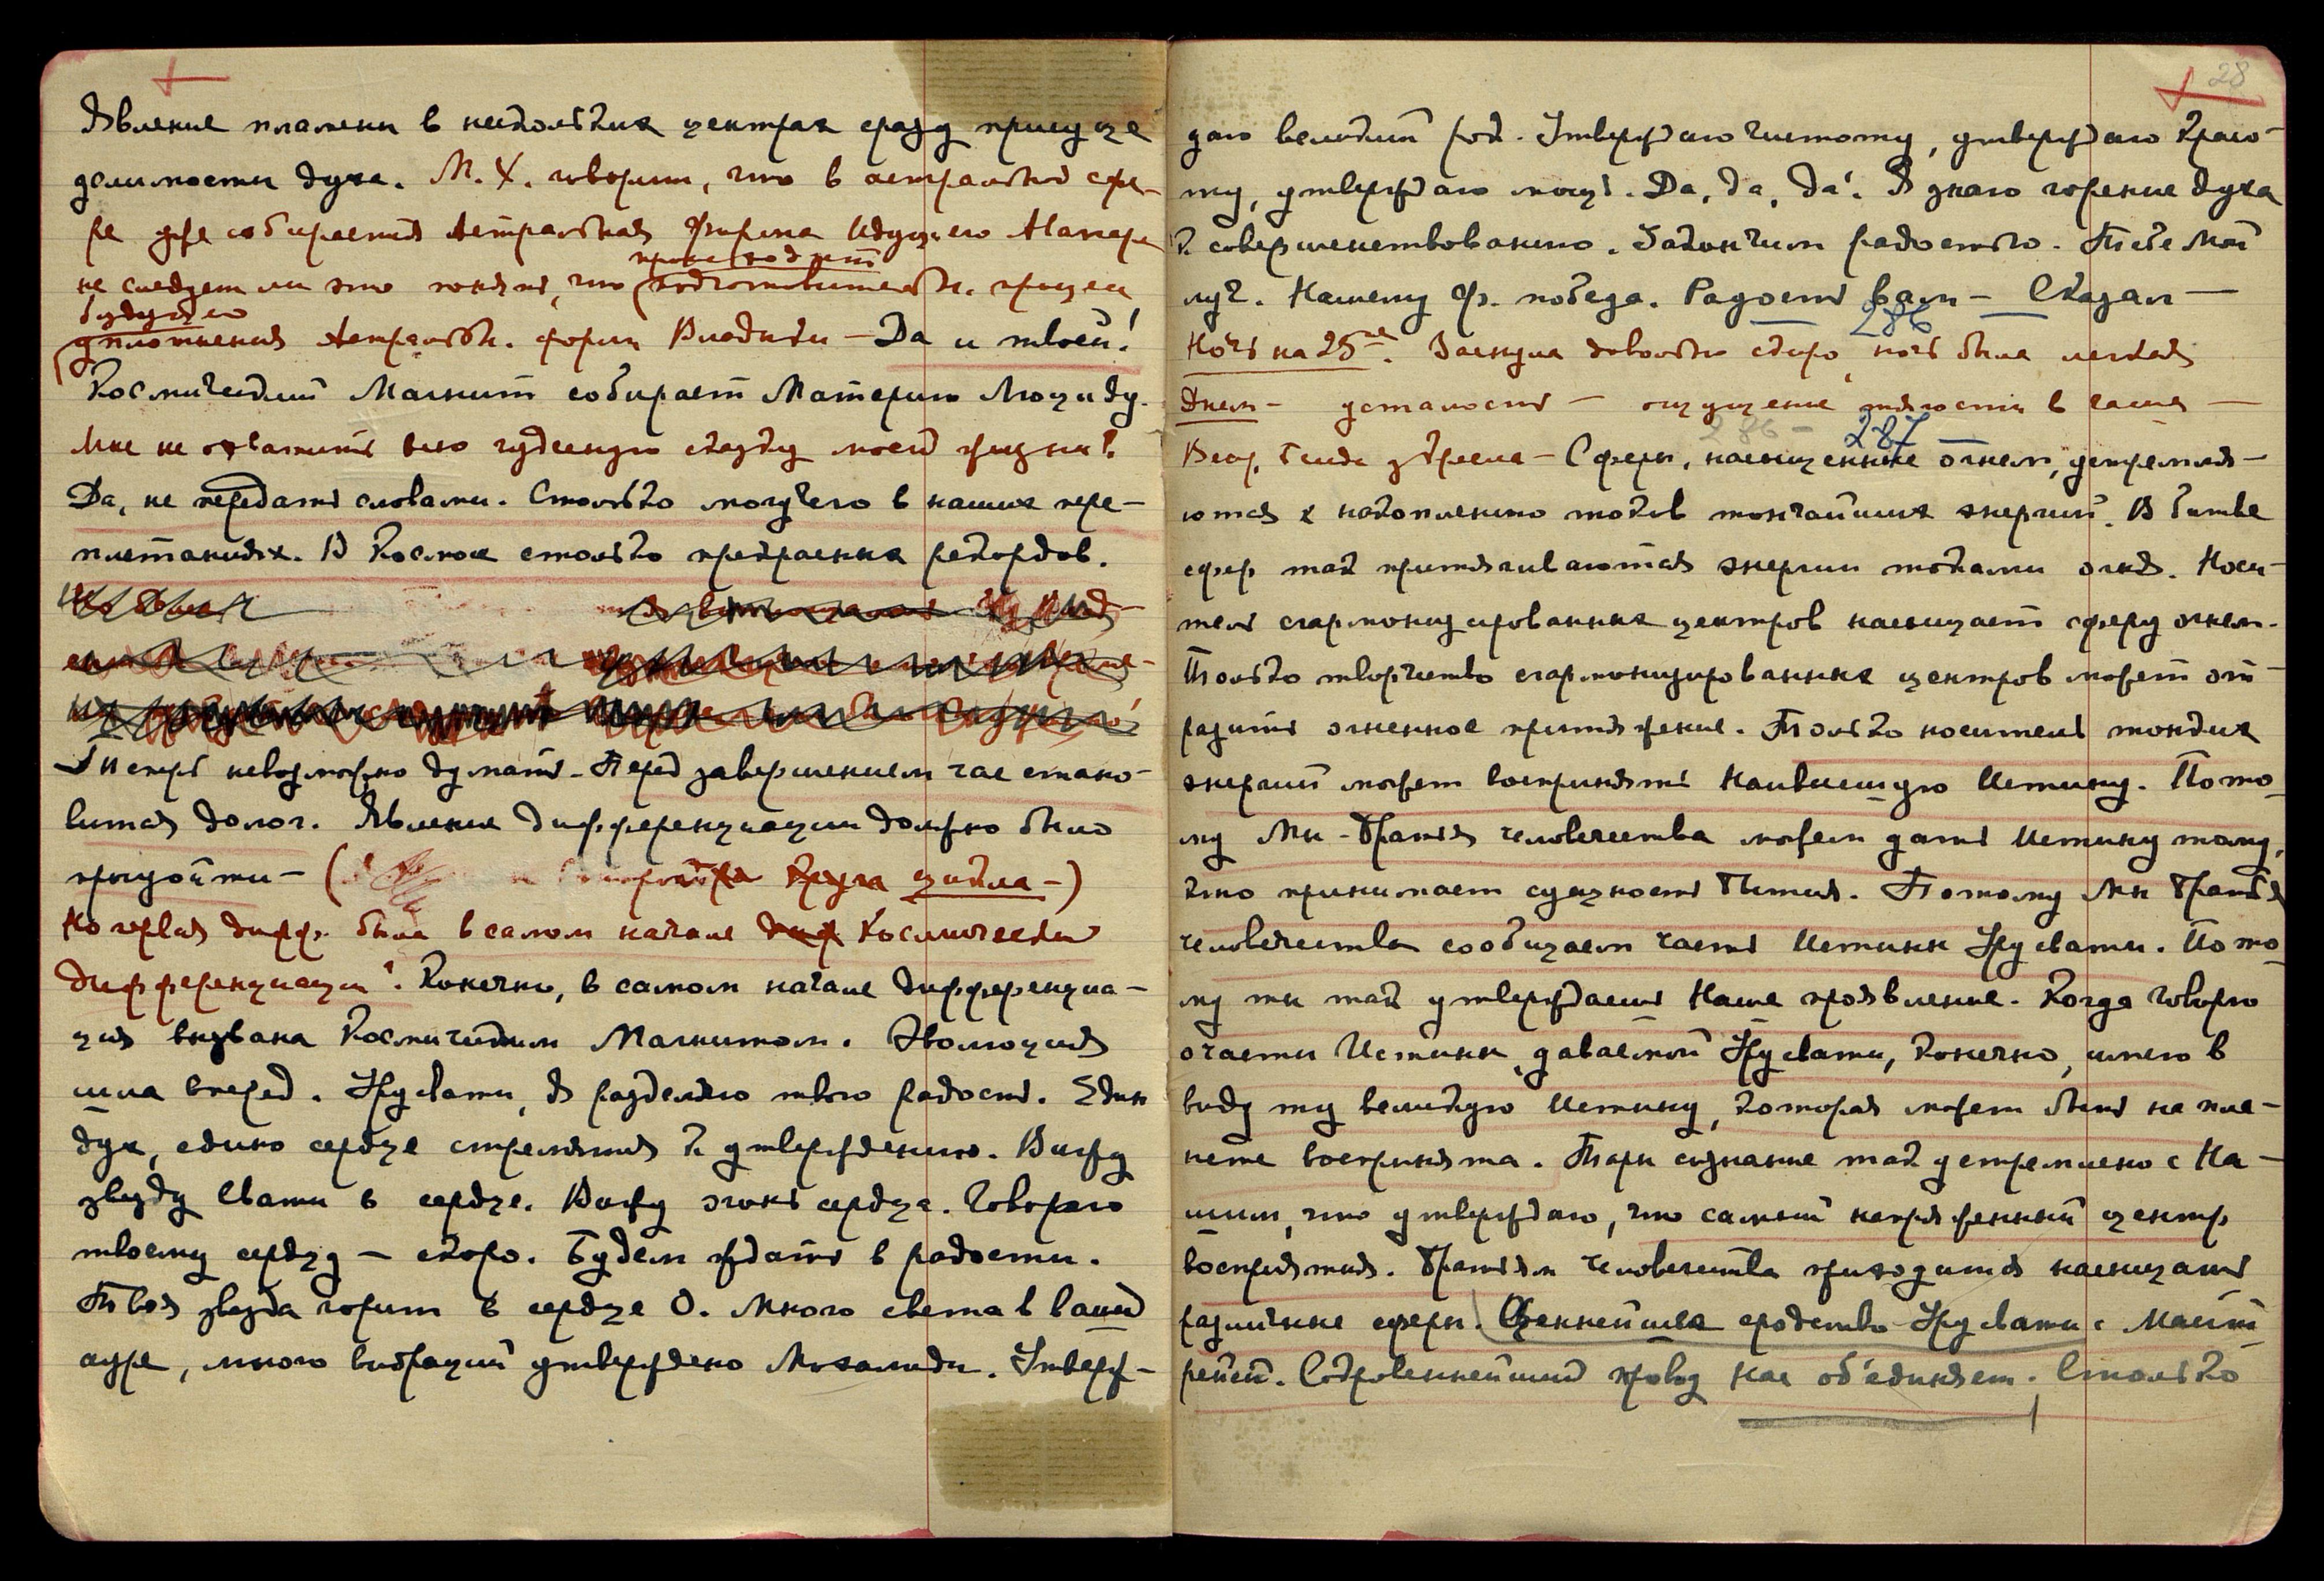 Явление пламени в нескольких центрах сразу присуще
делимости духа. М. Х. говорит, что в астральной сфе-
ре уже собирается Астральная Форма Идущего Матери
производит
не следует ли это понять, что (подготовительн. процесс
будущего
уплотнения Астральн. форм Владыки — Да и твоей!
Космический Магнит собирает Материю Люциду.
Мне не охватить всю чудесную сказку моей жизни!
Да, не передать словами. Столько могучего в наших пере-
плетаниях. В Космосе столько прекрасных рекордов.
Теперь невозможно думать. Перед завершением час стано-
вится долог. Явление дифференциации должно было
произойти — ( круга цикла —)
Но первая дифф. была в самом начале Космической
дифференциации! Конечно, в самом начале дифференциа-
ция вызвана Космическим Магнитом. Эволюция
шла вперед. Урусвати, я разделяю твою радость. Един
дух, едино сердце стремятся к утверждению. Вижу
звезду Свати в сердце. Вижу огонь сердца. Говорю
твоему сердцу — скоро. Будем ждать в радости.
Твоя звезда горит в сердце О. Много света в вашей
ауре, много вибраций утверждено Мохалиды. Утверж-
28
даю великий рок. Утверждаю чистоту, утверждаю красо-
ту, утверждаю мощь. Да, да, да! Я знаю горение духа
к совершенствованию. Закончим радостью. Тебе Мой
луч. Нашему Ф. победа. Радость вам — Сказал —
286
Ночь на 25ое. Заснула довольно скоро, ночь была легкая
Днем — усталость — ощущение тягости в чаше —
286 — 287
Веч. Сферы, насыщенные огнем, устремля-
ются к накоплению токов тончайших энергий. В битве
сфер так притягиваются энергии токами огня. Носи-
тель сгармонизированных центров насыщает сферу огнем.
Только творчество сгармонизированных центров может от-
разить огненное притяжение. Только носитель тонких
энергий может воспринять Наивысшую Истину. Пото-
му Мы — Братья человечества можем дать Истину тому,
кто принимает сущность Бытия. Потому Мы Братья
человечества сообщаем часть Истины Урусвати. Пото-
му ты так утверждаешь Наше проявление. Когда говорю
о части Истины, даваемой Урусвати, конечно, имею в
виду ту великую Истину, которая может быть на пла-
нете воспринята. Тары сознание так устремлено с На-
шим, что утверждаю, что самый напряженный центр
восприятия. Братьям человечества приходится насыщать
различные сферы. Ценнейшее сродство Урусвати с Маст
рейей. Сокровеннейший провод нас объединяет. Столько